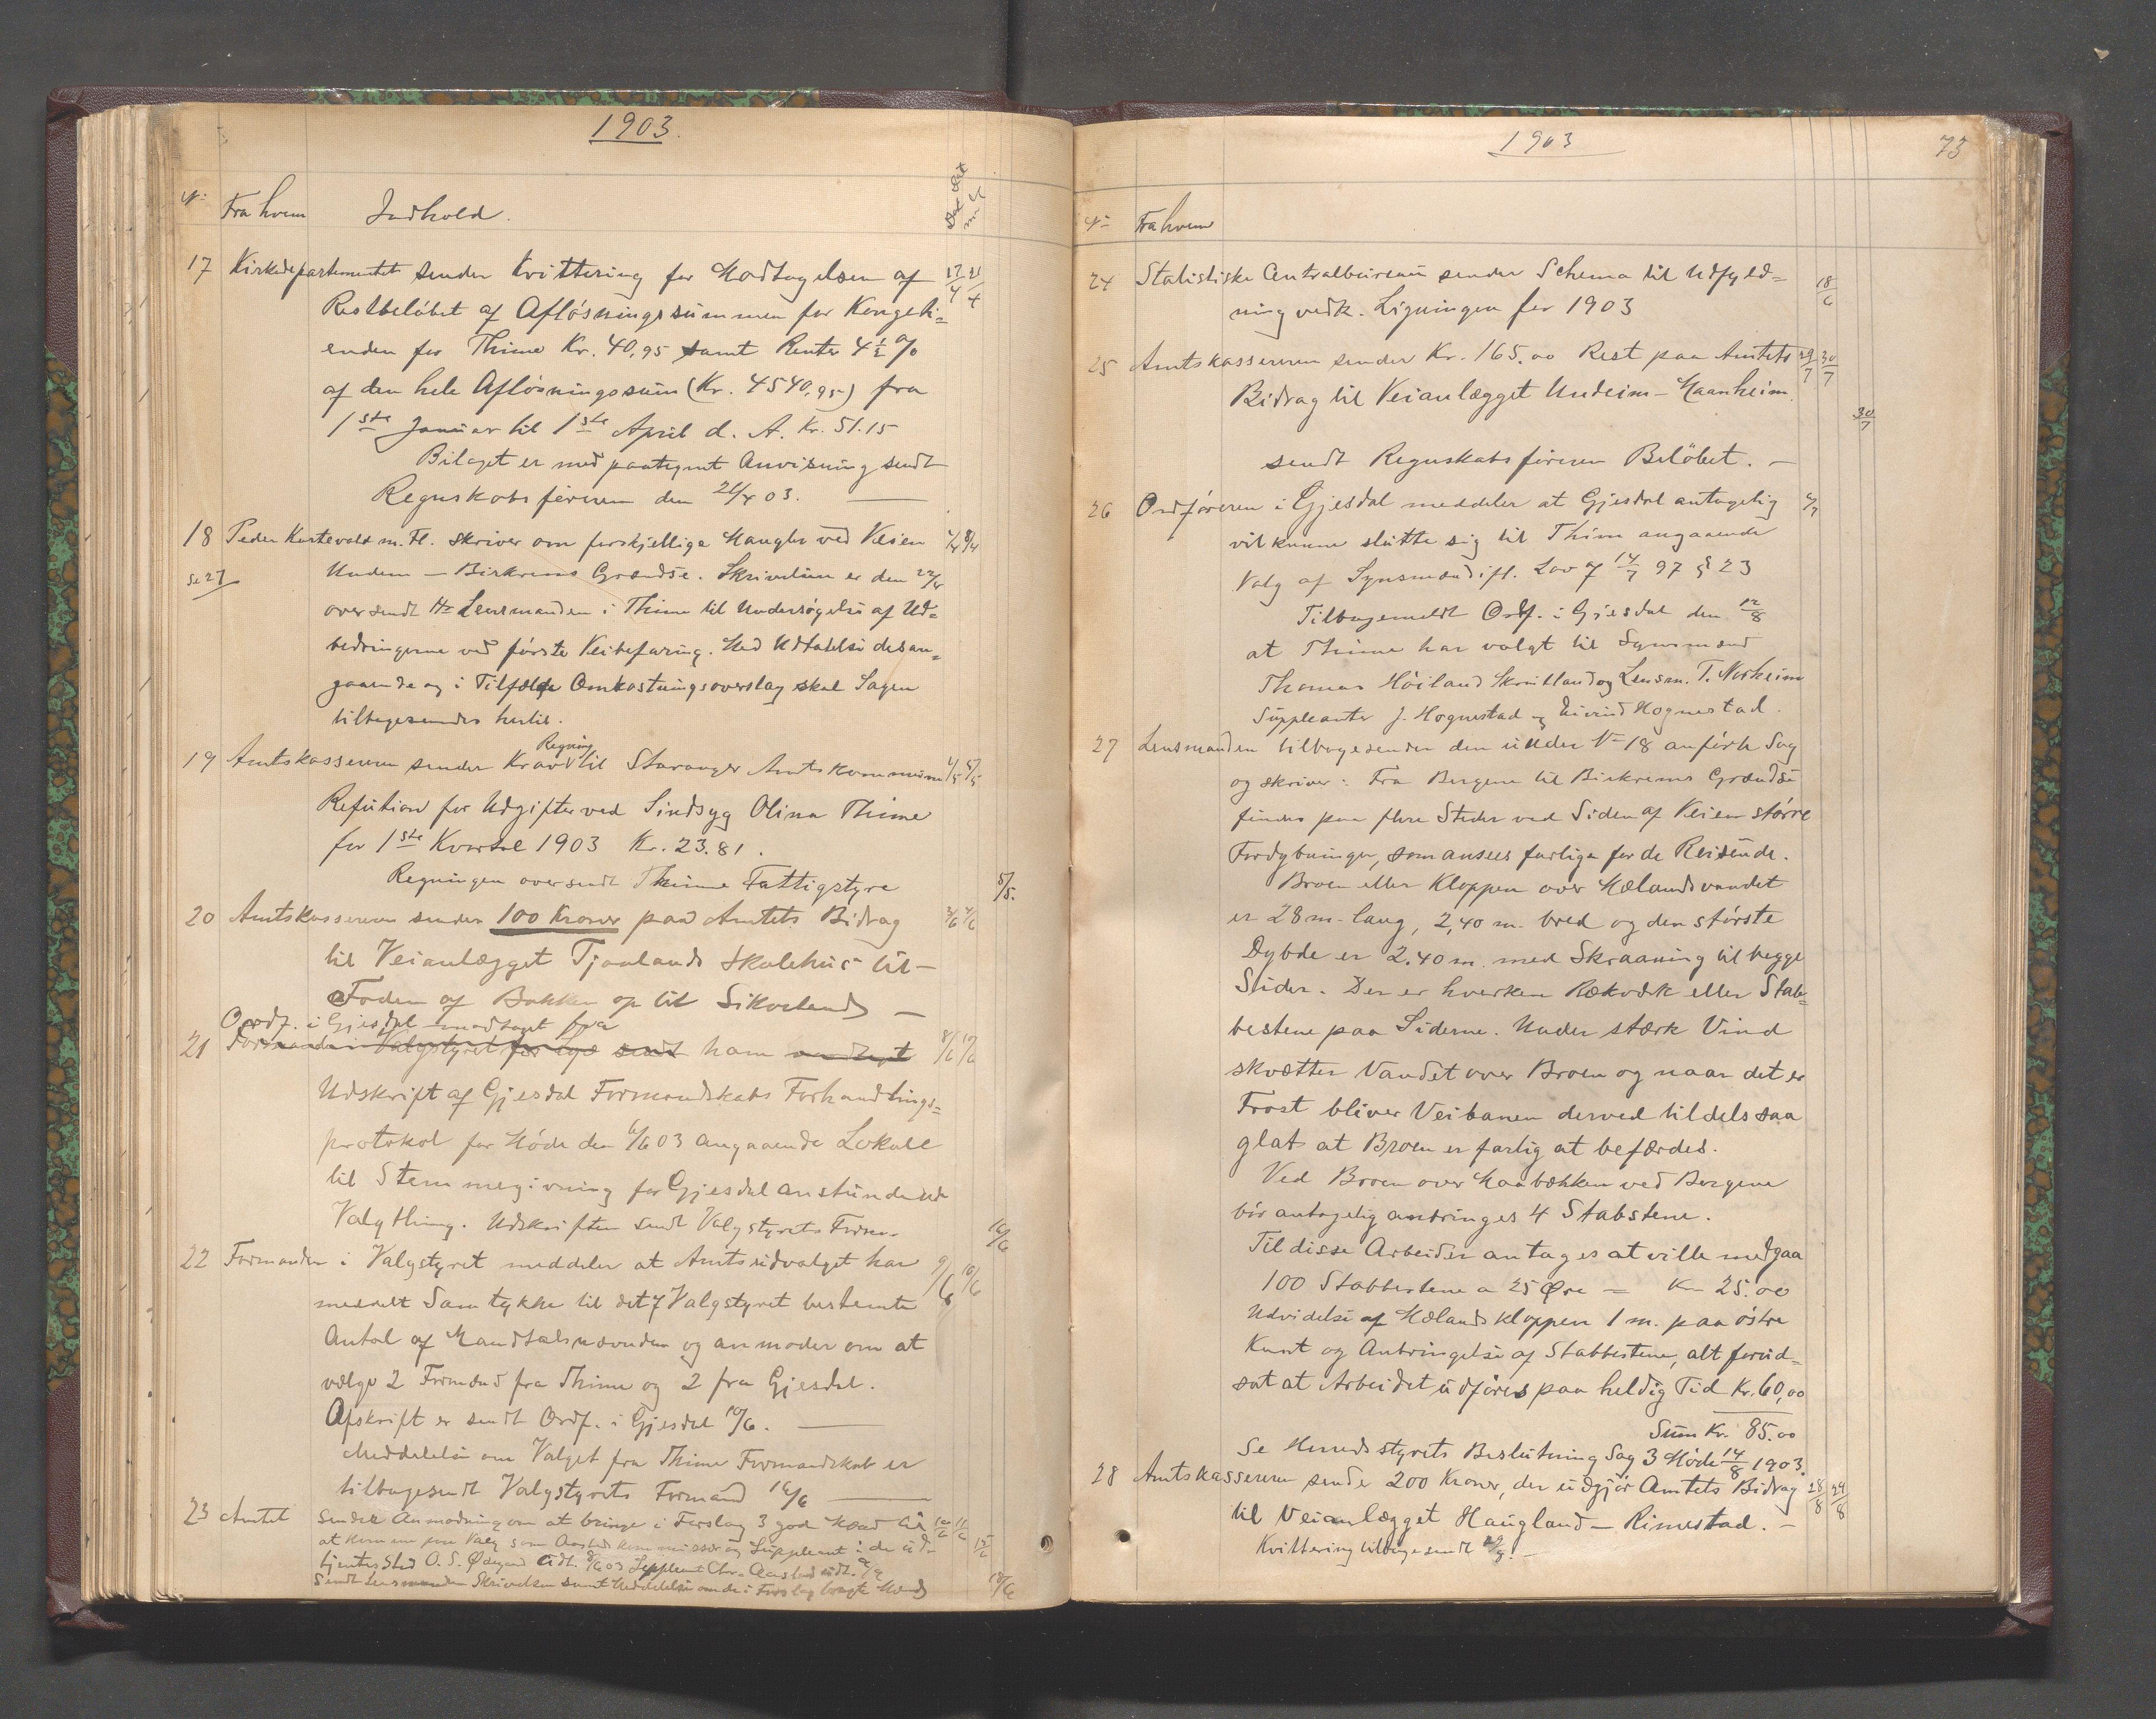 1903.
No Fra hvem Indhold.
17 Kirkedepartementet sender Kvittering for Modtagelsen af 17/4 21/4
Restbeløbet af Afløsningssummen for Kongeti=
enden for Thime Kr. 40,95 samt Renter 4 1/2 %
af den hele Afløsningssum (Kr. 4540,95) fra
1ste Januar til 1ste April d. A. Kr. 51.15
Bilaget er med paategnt Anvisning sendt
Regnskabsføreren den 21/4 03.
18 Peder Kartevold m. Fl. skriver om forskjellige Mangler ved Veien
Se 27 Undem — Birkrems Grændse. Skrivelsen er den 22/4
oversendt Hr Lensmanden i Thime til Undersøgelse af Ud=
bedringerne ved første Veibefaring. Med Udtalelse desan=
gaaende og i Tilfælde Omkostningsoverslag skal Sagen
tilbagesendes hertil.
Regning
19 Amtskassereren sender Krav til Stavanger Amtskommune 4/5 5/5
Refution for Udgifter ved Sindsyg Olina Thime
for 1ste Kvartal 1903 Kr. 23.81.
Regningen oversendt Thime Fattigstyre 5/5.
20 Amtskassereren sender 100 Kroner paa Amtets Bidrag
til Veianlægget Tjaalands Skolehus til —
Foden af Bakken op til Sikvaland —
Ordf. i Gjesdal modtaget fra
21 Formanden i Valgstyret for Lye sendt ham modtagt 8/6 10/6
Udskrift af Gjesdal Formandskabs Forhandlings=
protokol for Møde den 6/6 03 angaaende Lokale
til Stemmegivning for Gjesdal anstundende
Valgthing. Udskriften sendt Valgstyrets Form. 10/6
22 Formanden i Valgstyret meddeler at Amtsudvalget har 9/6 10/6
meddelt Samtykke til det af Valgstyret bestemte
Antal af Mandtalsnævnder og anmoder om at
vælge 2 Formænd fra Thime og 2 fra Gjesdal.
Afskrift er sendt Ordf. i Gjesdal 10/6.
Meddelelse om Valget fra Thime Formandskab er
tilbagesendt Valgstyrets Formand 16/6
23 Amtet sender Anmodning om at bringe i Forslag 3 gode Mænd til 10/6 11/6
at komme paa Valg som Aastedskommissær og Suppleant i de ud=
tjentes Sted O. S. Ødegaard Suppleant Chr. Aarstad
Sendt Lensmanden Skrivelsen samt Meddelelse om de i Forslag bragte Mænd 18/6
1903 73
No Fra hvem
24 Statistiske Centralbureau sender Schema til Udfyld= 18/6
ning vedk. Ligningen for 1903
25 Amtskassereren sender Kr. 165.00 Rest paa Amtets 29/7 30/7
Bidrag til Veianlægget Undeim — Maanheim.
30/7
sendt Regnskabsføreren Beløbet. —
26 Ordføreren i Gjesdal meddeler at Gjesdal antagelig
vil kunne slutte sig til Thime angaaende
Valg af Synsmænd ifl. Lov af 14/7 97 § 23
Tilbagemeldt Ordf. i Gjesdal den 12/8
at Thime har valgt til Synsmænd
Thomas Høiland Skrudland og Lensm. T. Norheim
Suppleanter J. Hognestad og Eivind Hognestad.
27 Lensmanden tilbagesender den under No 18 anførte Sag
og skriver: Fra Bergene til Birkrems Grændse
findes paa flere Steder ved Siden af Veien større
Fordybninger, som ansees farlige for de Reisende.
Broen eller Kloppen over Mælandsvandet
er 28 m. lang, 2,40 m. bred og den største
Dybde er 2.40 m. med Skraaning til begge
Sider. Der er hverken Rækværk eller Stab=
bestene paa Siderne. Under stærk Vind
skvætter Vandet over Broen og naar det er
Frost bliver Veibanen derved tildels saa
glat at Broen er farlig at befærdes.
Ved Broen over Maabækken ved Bergene
bør antagelig anbringes 4 Stabstene.
Til disse Arbeider antages at ville medgaa
100 Stabbestene a 25 Øre = Kr 25.00
Udvidelse af Mælandskloppen 1 m. paa østre
Kant og Anbringelse af Stabbestene, alt forud=
sat at Arbeidet udføres paa heldig Tid Kr. 60,00
Sum Kr. 85.00
Se Herredsstyrets Beslutning Sag 3 Møde 14/8 1903.
28 Amtskassereren sender 200 Kroner, der udgjør Amtets Bidrag 28/8 29/8
til Veianlægget Haugland — Rimestad. —
Kvittering tilbagesendt —